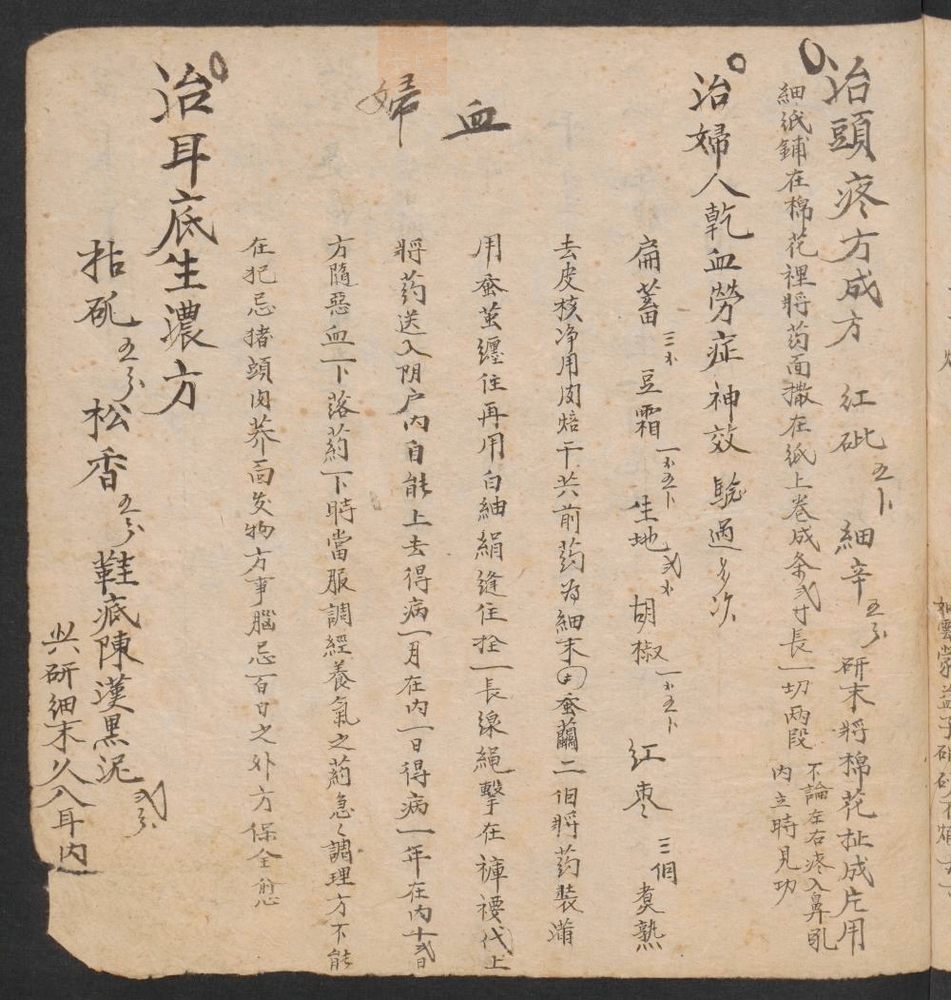 治頭疼方成方 紅砒五卜 細辛五分 研末將棉花扯成片用
細紙鋪在棉花裡將药面撒在紙上卷成条弍寸長一切两段 不論左右疼入鼻孔
内立時見功
治婦人乾血勞症神效 驗過多次
扁蓄三小 豆霜一小五卜 生地弍小 胡椒一小五卜 紅枣三個煑熟
去皮核净用肉焙干共前药為細末由蚕繭二個將药装滿
用蚕茧纒住再用白紬絹缝住拴一長線繩擊在褲腰代上
將药送入阴户内自能上去得病一月在内一日得病一年在内十弍日
方隨惡血一下落药一下時當服調經養氣之药急々調理方不能
在犯忌猪頭肉荞面发物方事腦忌百日之外方保全愈
血
婦
治耳底生濃方
拈矾五分 松香五分 鞋底陳漢黑泥弍分
共研細末久入耳内